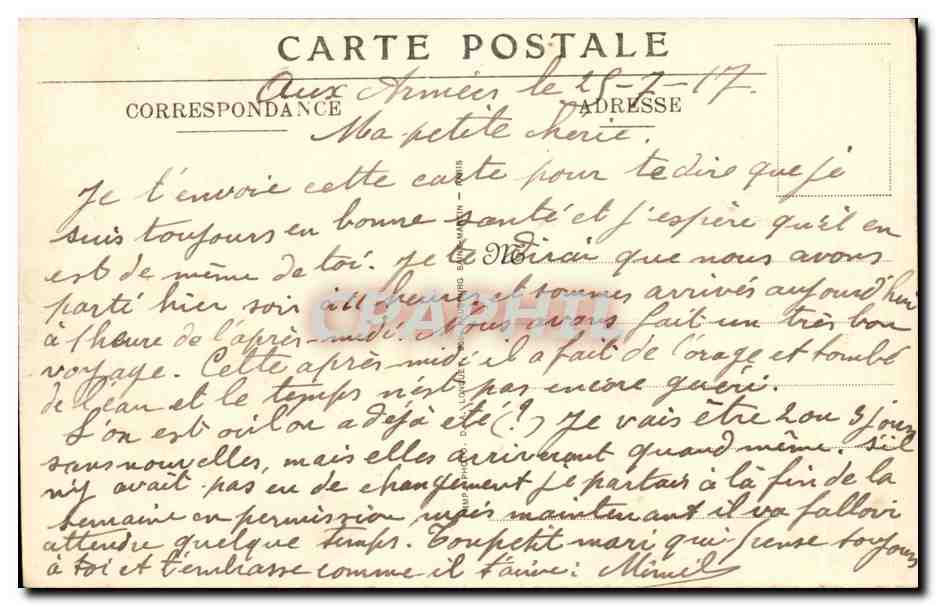 CARTE POSTALE
Aux Armées le 25-7-17.
CORRESPONDANCE
ADRESSE
Ma petite chérie.
Je t'envoie cette carte pour te dire que je
suis toujours en bonne santé et j'espère qu'il en
est de même de toi. Je te dirai que nous avons
parti hier soir à 11 heures et sommes arrivés aujourd'hui
à 1 heure de l'après-midi. Nous avons fait un très bon
voyage. Cette après midi il a fait de l'orage et tombé
de l'eau et le temps n'est pas encore guéri.
L'on est où l'on a déjà été (?) Je vais être 2 ou 3 jours
sans nouvelles, mais elles arriveront quand même. S'il
n'y avait pas eu de changement je partais à la fin de la
semaine en permission mais maintenant il va falloir
attendre quelque temps. Ton petit mari qui pense toujours
à toi et t'embrasse comme il t'aime: Mimil
CRAPHIL